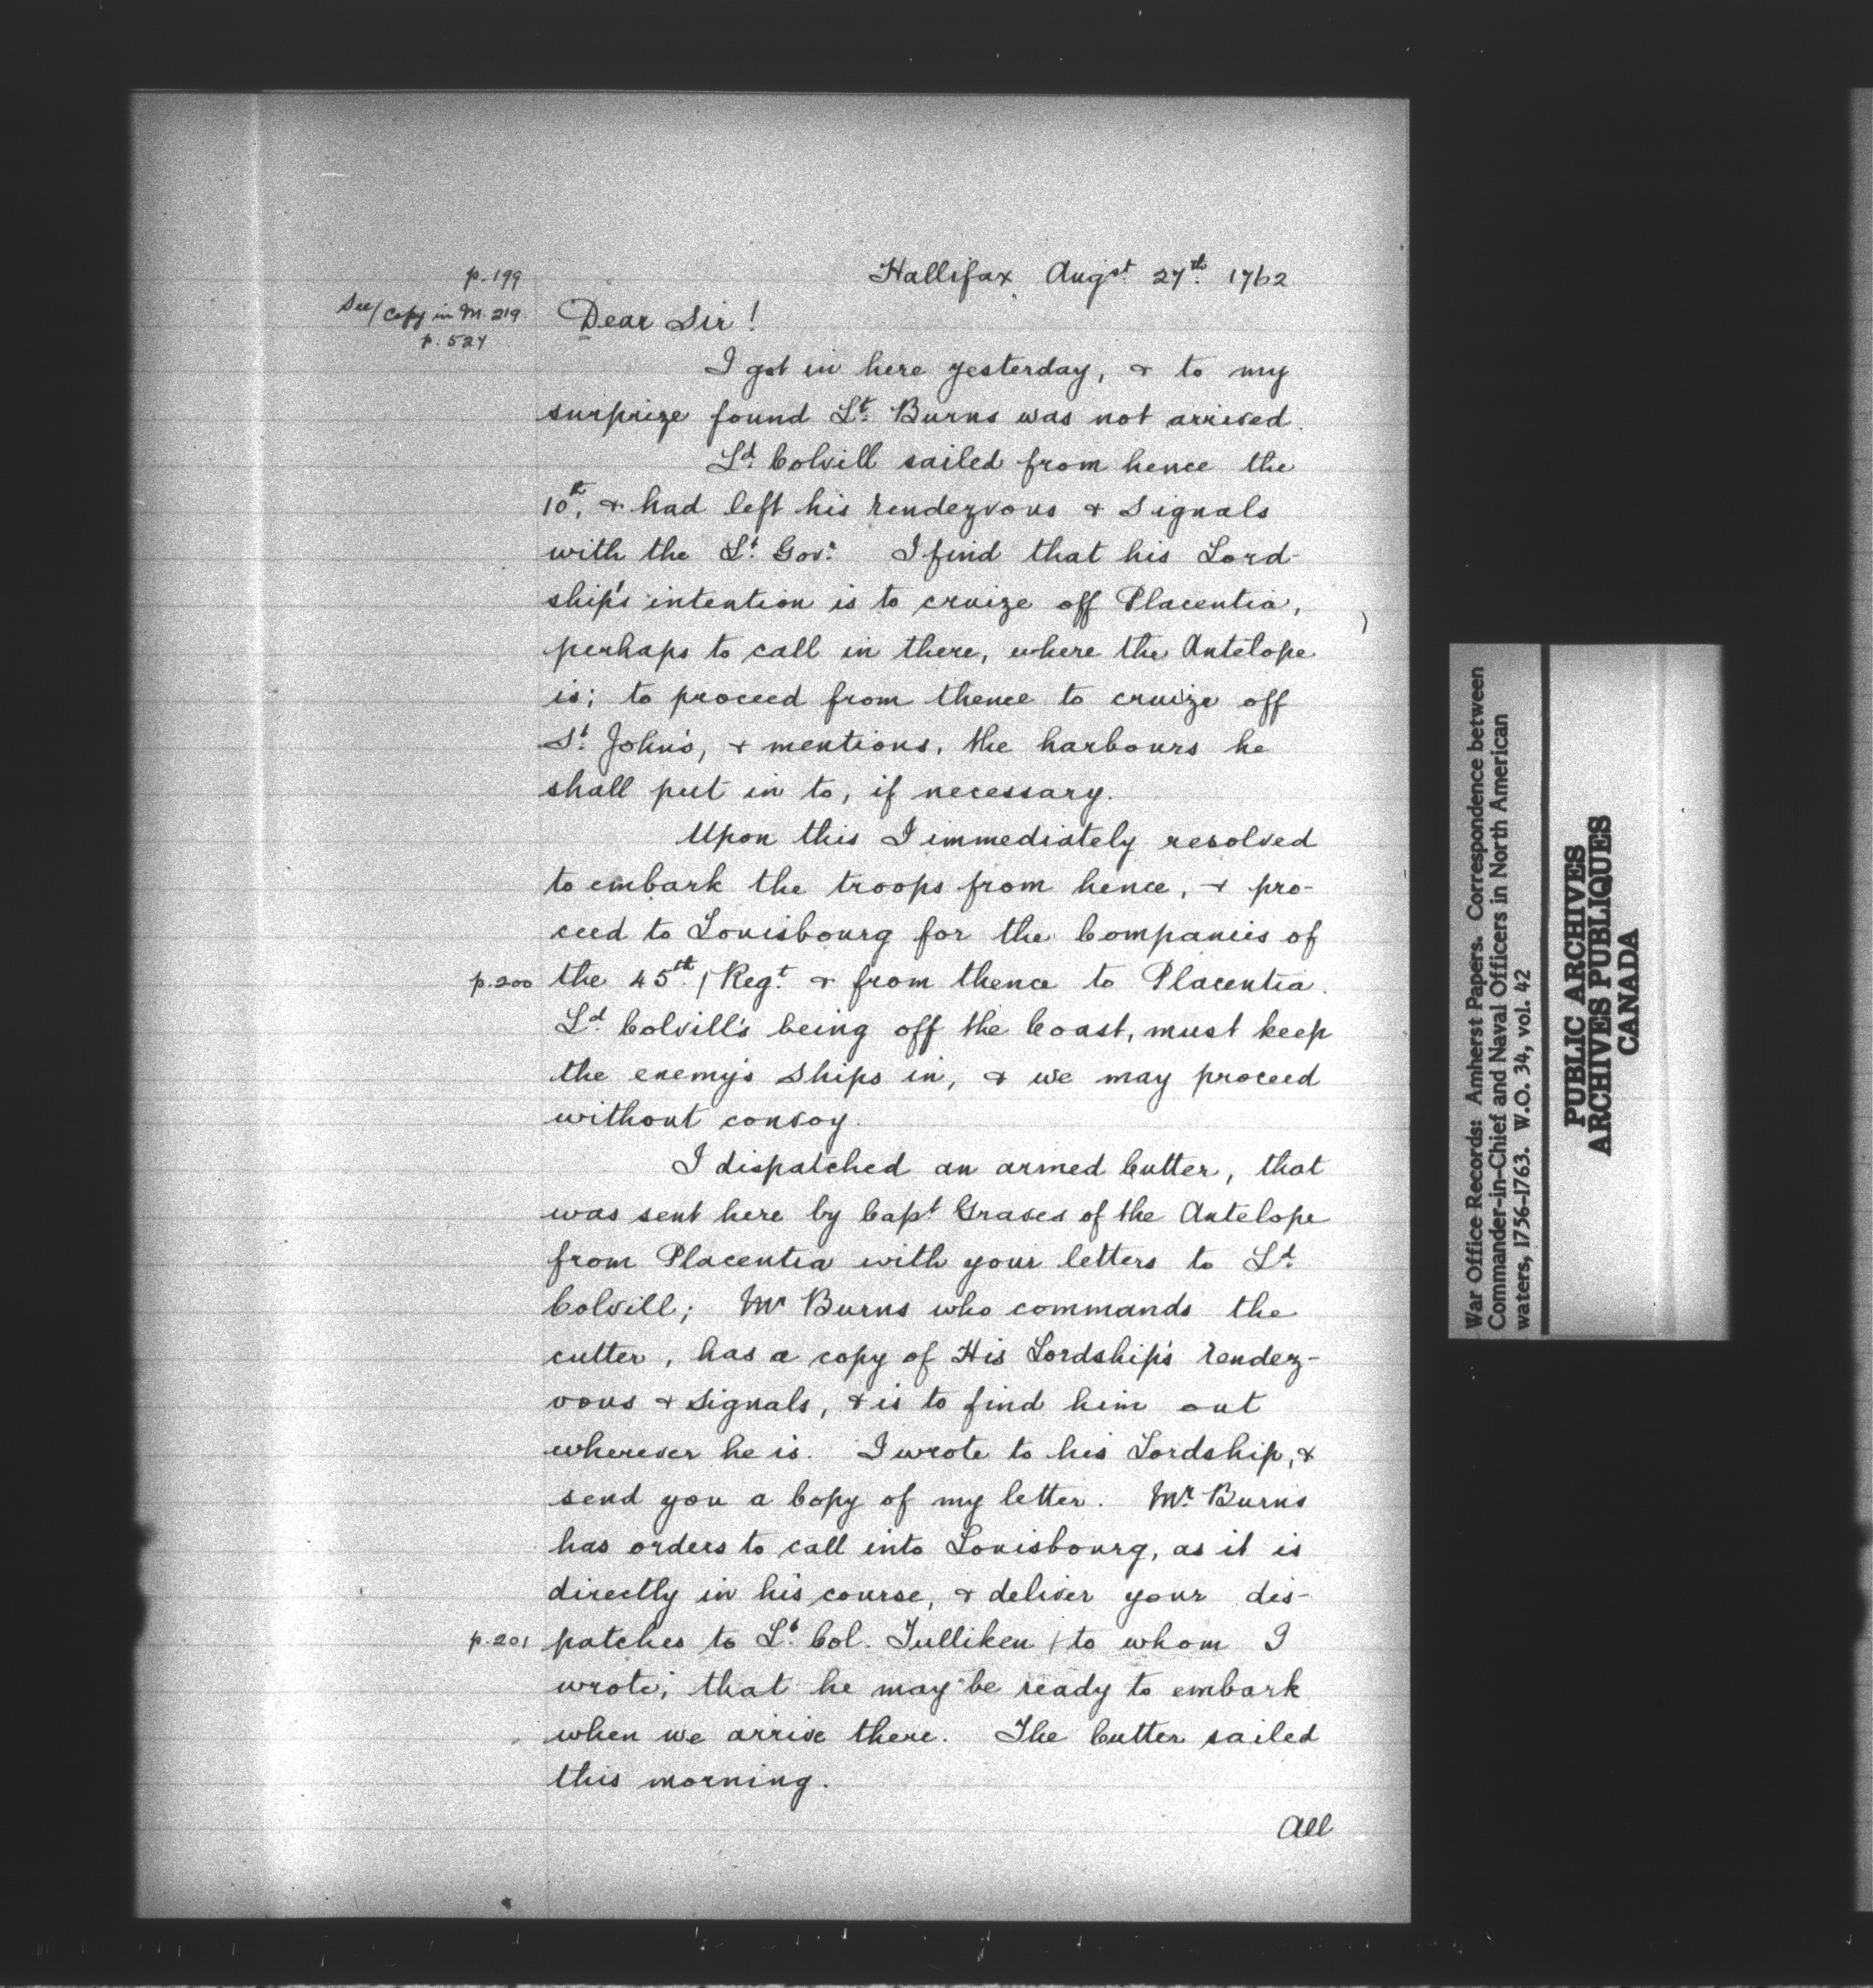 p. 199
See/ Copy in M. 219
p. 527
Hallifax Augst 27th 1762
Dear Sir!
I got in here yesterday, & to my
surprize found Lt. Burns was not arrived.
Ld. Colvill sailed from hence the
10th, & had left his rendezvous & Signals
with the Lt. Govr. I find that his Lord-
ship's intention is to cruize off Placentia,
perhaps to call in there, where the Antelope
is; to proceed from thence to cruize off
St. John's, & mentions, the harbours he
shall put in to, if necessary.
Upon this I immediately resolved
to embark the troops from hence, & pro-
ceed to Louisbourg for the Companies of
p. 200 the 45th / Regt. & from thence to Placentia.
Ld. Colvill's being off the Coast, must keep
the enemy's Ships in, & we may proceed
without convoy.
I dispatched an armed Cutter, that
was sent here by Capt Graves of the Antelope
from Placentia with your letters to Ld.
Colvill; Mr Burns who commands the
cutter, has a copy of His Lordship's rendez-
vous & Signals, & is to find him out
wherever he is. I wrote to his Lordship, &
send you a Copy of my letter. Mr. Burns
has orders to call into Louisbourg, as it is
directly in his course, & deliver your dis-
p. 201 patches to Lt. Col. Tulliken / to whom I
wrote; that he may be ready to embark
when we arrive there. The Cutter sailed
this morning.
All
War Office Records: Amherst Papers. Correspondence between
Commander-in-Chief and Naval Officers in North American
waters, 1756-1763. W.O. 34, vol. 42
PUBLIC ARCHIVES
ARCHIVES PUBLIQUES
CANADA